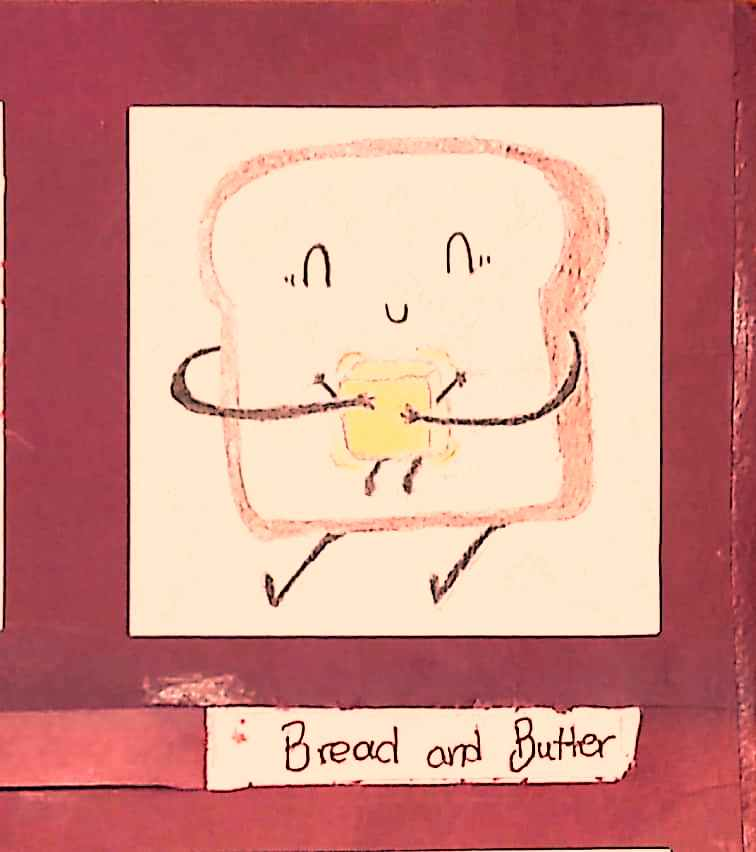 Bread and Butter